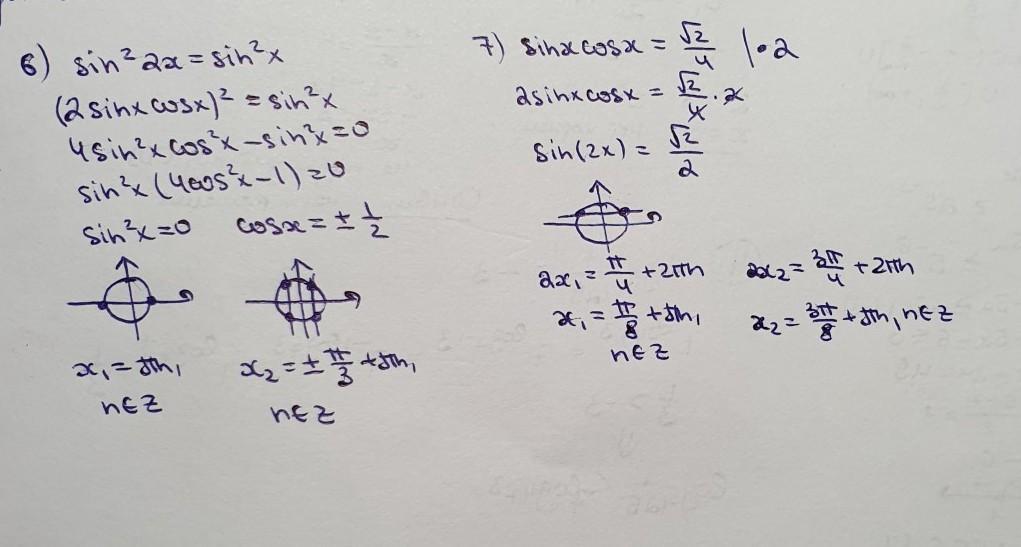 6) sin² 2x = sin² x
(2 sinx cosx)² = sin² x
4 sin² x cos² x - sin² x = 0
sin² x (4cos² x - 1) = 0
sin² x = 0 cosx = ± 1/2
x₁ = πn, x₂ = ± π/3 + πn,
n∈Z n∈Z
7) sinx cosx = √2/4 | • 2
2sinx cosx = √2/4 · 2
sin(2x) = √2/2
2x₁ = π/4 + 2πn 2x₂ = 3π/4 + 2πn
x₁ = π/8 + πn, x₂ = 3π/8 + πn, n∈Z
n∈Z